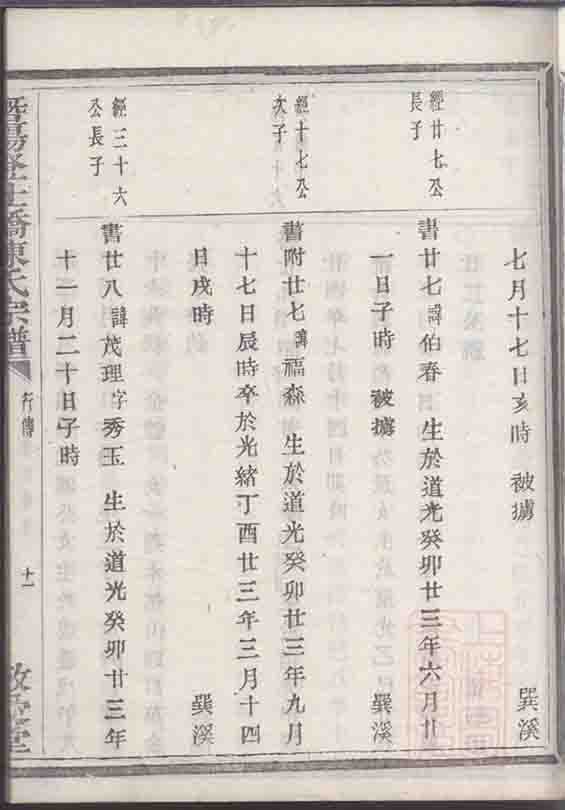 七月十七日亥時 被擄 巽溪
經廿七公
長子
書廿七諱伯春 生於道光癸卯廿三年六月廿
一日子時 被擄 巽溪
經十七公
次子
書附廿七諱福森 生於道光癸卯廿三年九月
十七日辰時卒於光緒丁酉廿三年三月十四
日戌時 巽溪
經三十六
公長子
書廿八諱茂理字秀玉 生於道光癸卯廿三年
十一月二十日子時
暨陽 橋陳氏宗譜 行傳 十一